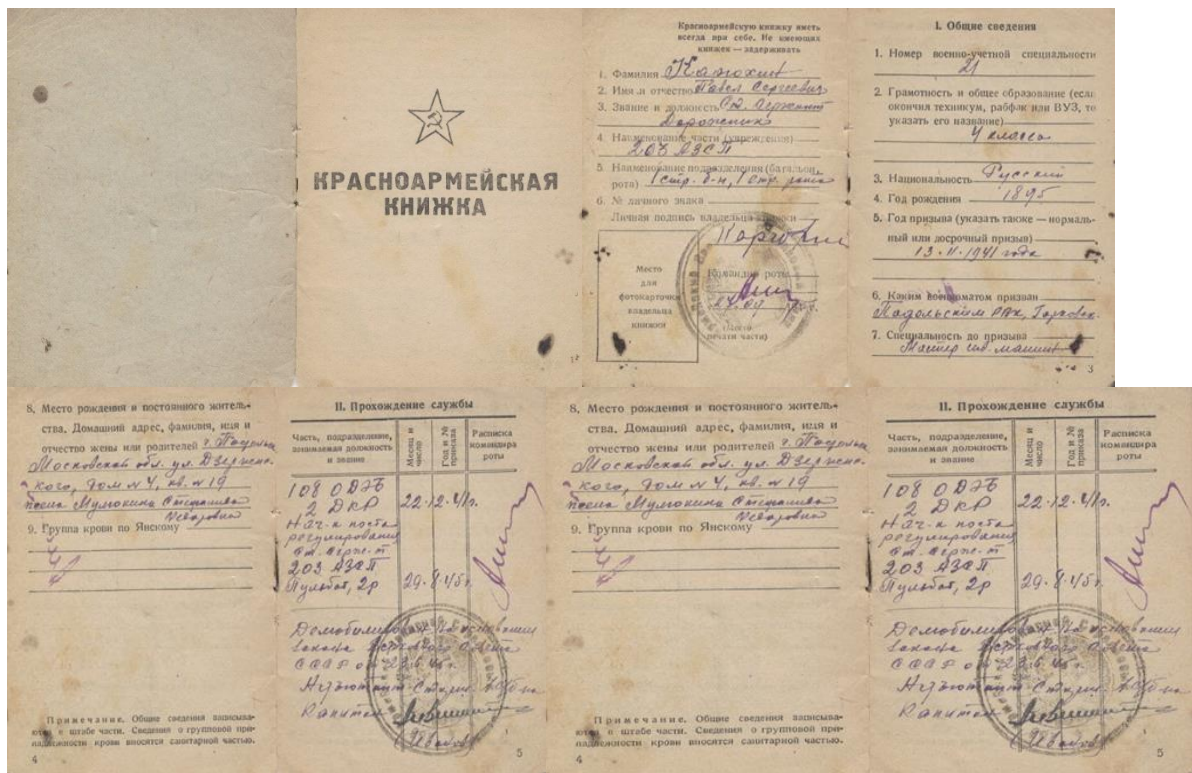 КРАСНОАРМЕЙСКАЯ
КНИЖКА
Красноармейскую книжку иметь
всегда при себе. Не имеющих
книжек — задерживать
1. Фамилия
2. Имя и отчество Павел Сергеевич
3. Звание и должность Ст. Сержант
Дорожник
4. Наименование части (учреждения)
203 АЗСП
5. Наименование подразделения (батальон,
рота) 1 стр. б-н, 1 стр. рота
6. № личного знака
Личная подпись владельца книжки
Место
для
фотокарточки
владельца
книжки
Командир роты
(Место
печати части)
1. Общие сведения
1. Номер военно-учетной специальности
21
2. Грамотность и общее образование (если
окончил техникум, рабфак или ВУЗ, то
указать его название)
4 класса
3. Национальность Русский
4. Год рождения 1895
5. Год призыва (указать также — нормаль-
ный или досрочный призыв)
13.11.1941 года
6. Каким военкоматом призван
Подольским РВК,
7. Специальность до призыва
Мастер шв. машин
3
8. Место рождения и постоянного житель-
ства. Домашний адрес, фамилия, имя и
отчество жены или родителей г. Подольск
Московской обл. ул. Дзержинс-
кого, дом № 4, кв. № 19
жена
9. Группа крови по Янскому
Примечание. Общие сведения записыва-
ются в штабе части. Сведения о групповой при-
надлежности крови вносятся санитарной частью.
4
II. Прохождение службы
Часть, подразделение,
занимаемая должность
и звание
Месяц и
число
Год и №
приказа
Расписка
командира
роты
108 ОДЭБ
2 ДКР 22.12.41г.
Нач-к поста
регулирования
ст. серж-т
203 АЗСП
Пульбат, 2р 29.8.45г.
Демобилизован на основании
закона Верховного Совета
СССР от 23.6.45 г.
Капитан
5
8. Место рождения и постоянного житель-
ства. Домашний адрес, фамилия, имя и
отчество жены или родителей г. Подольск
Московской обл. ул. Дзержинс-
кого, дом № 4, кв. № 19
жена
9. Группа крови по Янскому
Примечание. Общие сведения записыва-
ются в штабе части. Сведения о групповой при-
надлежности крови вносятся санитарной частью.
4
II. Прохождение службы
Часть, подразделение,
занимаемая должность
и звание
Месяц и
число
Год и №
приказа
Расписка
командира
роты
108 ОДЭБ
2 ДКР 22.12.41г.
Нач-к поста
регулирования
ст. серж-т
203 АЗСП
Пульбат, 2р 29.8.45г.
Демобилизован на основании
закона Верховного Совета
СССР от 23.6.45 г.
Капитан
5